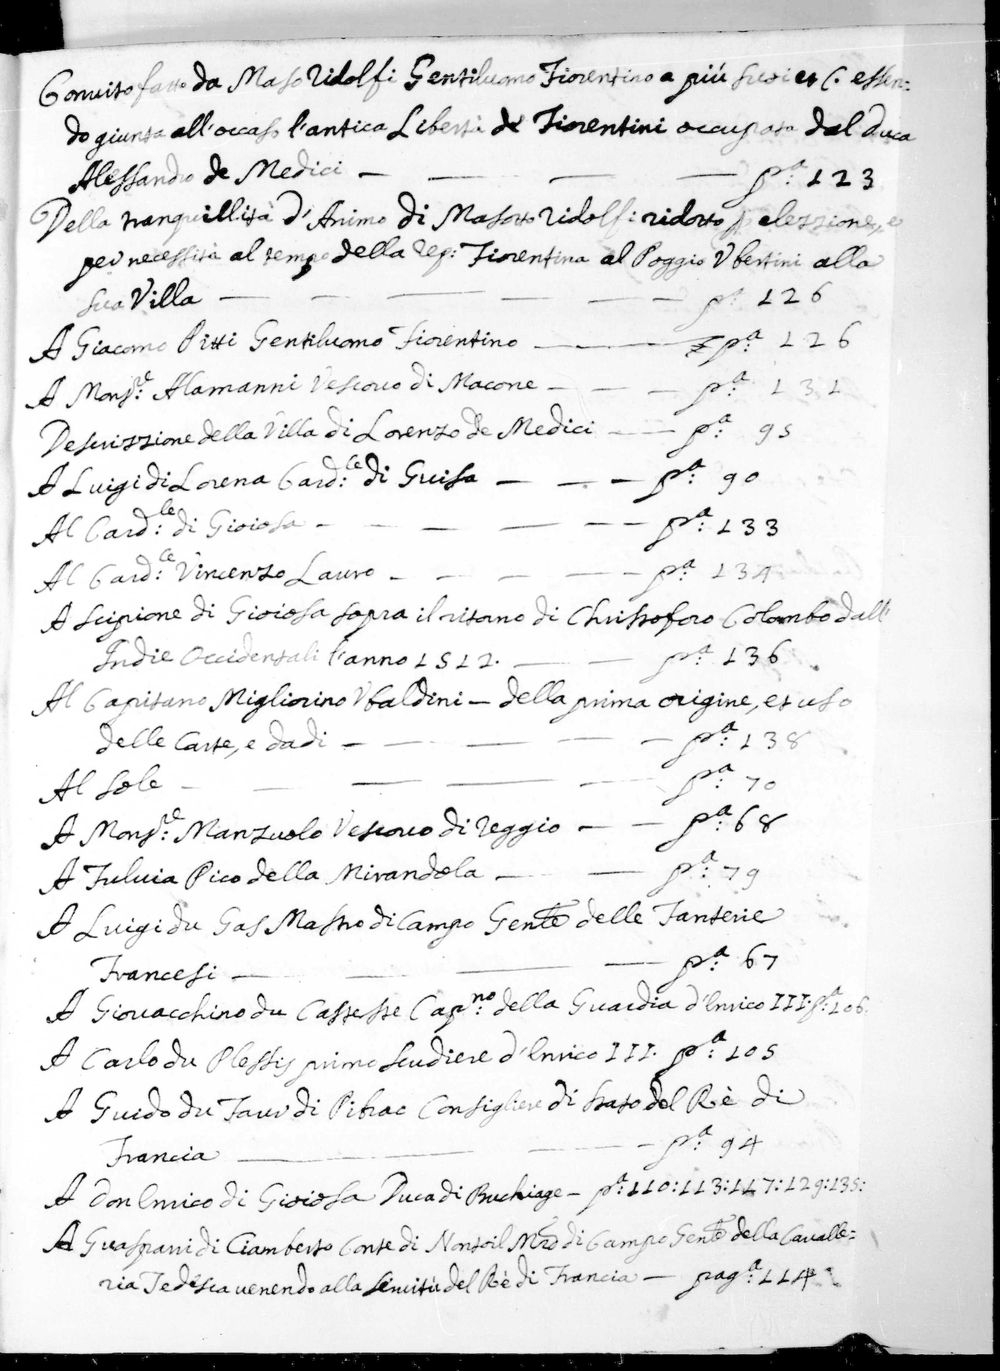 Conuito fatto da Maso Ridolfi Gentiluomo Fiorentino a più suoi et C. essen-
do giunta all'occaso l'antica Libertà de Fiorentini occupata dal Duca
Alessandro de Medici — — — — pa: 123
Della tranquillità d'Animo di Masotto Ridolfi ridotto p elezzione, e
per necessità al tempo della Rep: Fiorentina al Poggio Vbertini alla
sua Villa — — — — — — pa 126
A Giacomo Pitti Gentiluomo Fiorentino — — pa: 126
A Monsre: Alamanni Vescouo di Macone — — — pa: 131
Descrizzione della Villa di Lorenzo de Medici — — pa: 95
A Luigi di Lorena Card:le di Guisa — — — pa: 90
Al Card:le di Gioiosa — — — — — — pa: 133
Al Card:le Vincenzo Lauro — — — — — pa: 134
A Scipione di Gioiosa sopra il ritorno di Christoforo Colombo dall'
Indie Occidentali l'anno 1512. — — pa: 136
Al Capitano Migliorino Vbaldini — della prima origine, et uso
delle Carte, e dadi — — — — — pa: 138
Al Sole — — — — — — pa: 70
A Monsre: Manzuolo Vescouo di Reggio — — pa: 68
A Fuluia Pico della Mirandola — — pa: 79
A Luigi du Gas Mastro di Campo Genle delle Fanterie
Francesi — — — — pa: 67
A Giouacchino du Castesse Capno: della Guardia d'Enrico III: pa: 106.
A Carlo du Plessis primo Scudiere d'Enrico III. pa: 105
A Guido du Faur di Pibrac Consigliere di Stato del Rè di
Francia — — — pa: 94
A don Enrico di Gioiosa Duca di Buchiage — pa: 110: 113: 117: 129: 135:
A Guasparri di Ciamberto Conte di Nontoil Mro di Campo Genle della Caualle=
ria Tedesca uenendo alla seruitù del Rè di Francia — paga: 114